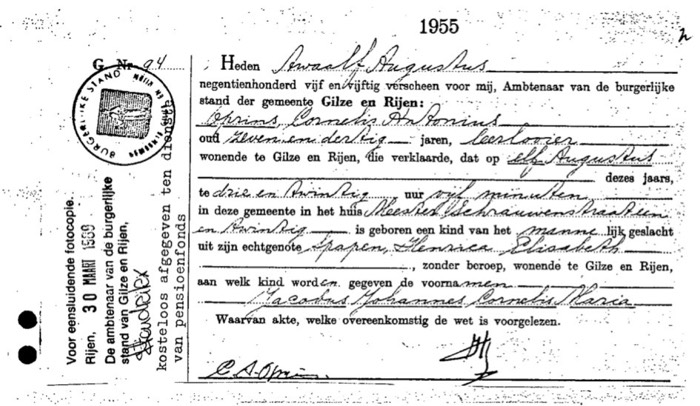 1955
G. Nr 94
Heden twaalf Augustus
negentienhonderd vijf en vijftig verscheen voor mij, Ambtenaar van de burgerlijke
stand der gemeente Gilze en Rijen:
Oprins, Cornelis Antonius
oud zeven en dertig jaren, leerlooier
wonende te Gilze en Rijen, die verklaarde, dat op elf Augustus
dezes jaars,
te drie en twintig uur vijf minuten
in deze gemeente in het huis Meester Schrauwenstraat een
en twintig is geboren een kind van het mannelijk geslacht
uit zijn echtgenote Spapen, Henrica Elisabeth
, zonder beroep, wonende te Gilze en Rijen,
aan welk kind worden gegeven de voornamen
Jacobus Johannes Cornelis Maria
Waarvan akte, welke overeenkomstig de wet is voorgelezen.
C A Oprins
BURGERLIJKE STAND
Voor eensluidende fotocopie.
Rijen, 30 MAART 1989
De ambtenaar van de burgerlijke
stand van Gilze en Rijen,
kosteloos afgegeven ten dienste
van pensioenfonds